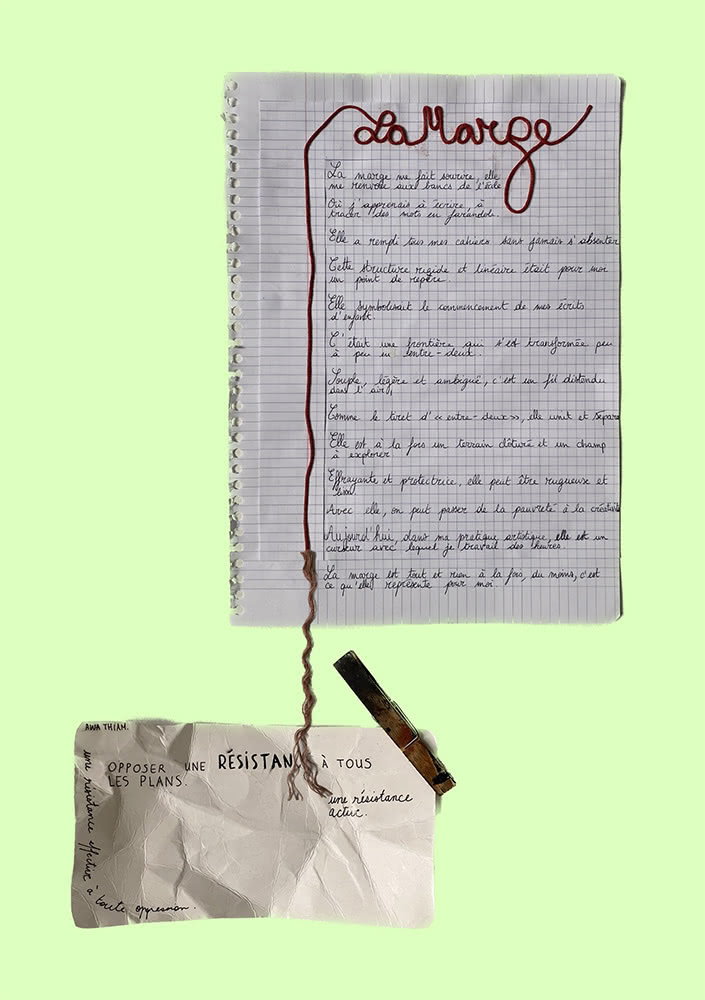 La Marge
La marge me fait sourire, elle
me renvoie aux bancs de l'école
Où j'apprenais à écrire, à
tracer des mots en farandole.
Elle a rempli tous mes cahiers sans jamais s'absenter
Cette structure rigide et linéaire était pour moi
un point de repère.
Elle symbolisait le commencement de mes écrits
d'enfant.
C'était une frontière qui s'est transformée peu
à peu en entre-deux.
Souple, légère et ambiguë, c'est un fil distendu
dans l'air,
Comme le tiret d'« entre-deux », elle unit et sépare
Elle est à la fois un terrain clôturé et un champ
à explorer
Effrayante et protectrice, elle peut être rugueuse et
lisse.
Avec elle, on peut passer de la pauvreté à la créativité
Aujourd'hui, dans ma pratique artistique, elle est un
curseur avec lequel je travail des heures.
La marge est tout et rien à la fois, du moins, c'est
ce qu'elle représente pour moi.
AWA THIAM.
OPPOSER UNE RÉSISTAN À TOUS
LES PLANS.
une résistance
active.
une résistance effective à toute oppression.